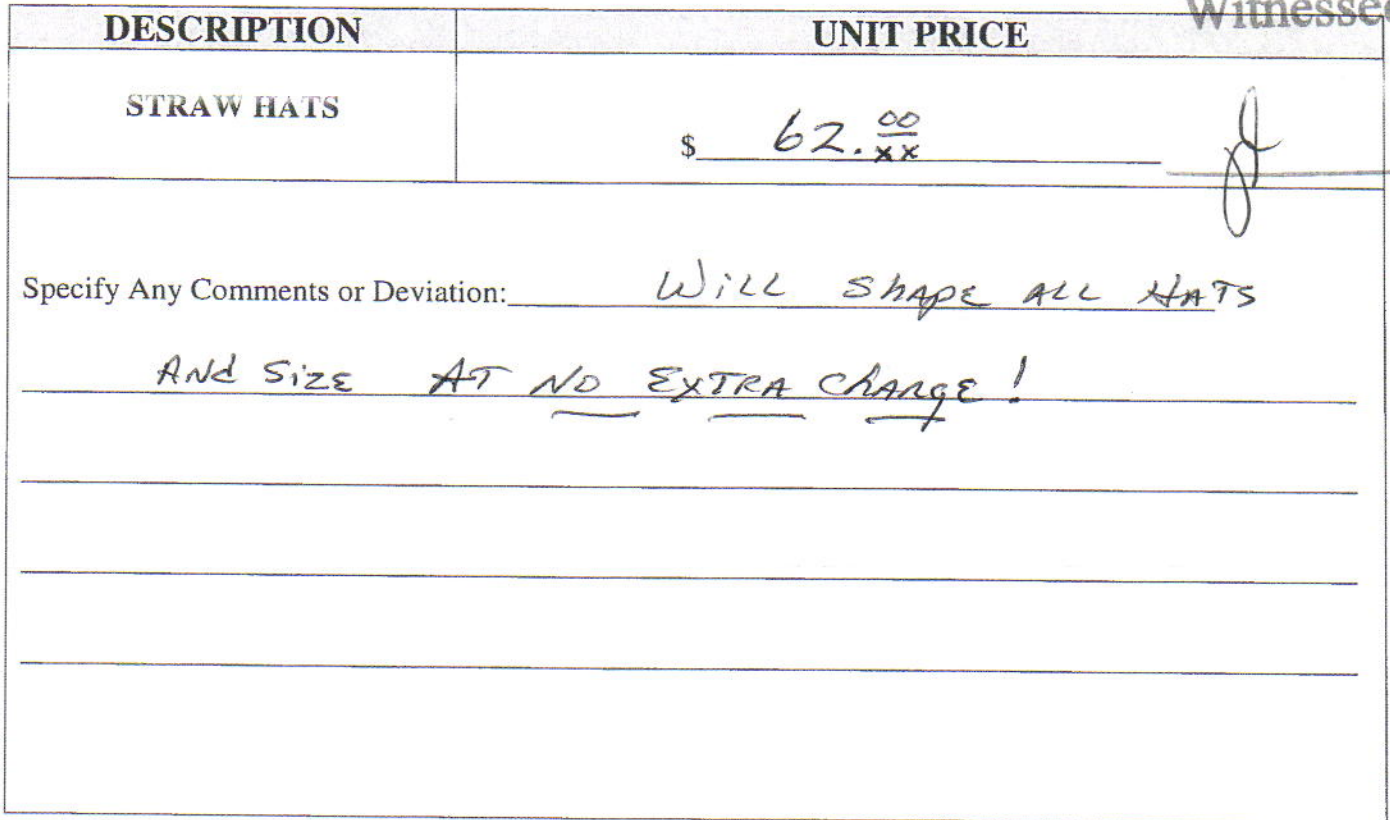 Witnessed
DESCRIPTION UNIT PRICE
STRAW HATS
$ 62.00/xx
Specify Any Comments or Deviation: Will Shape ALL HATS
And Size AT NO EXTRA ChARgE!